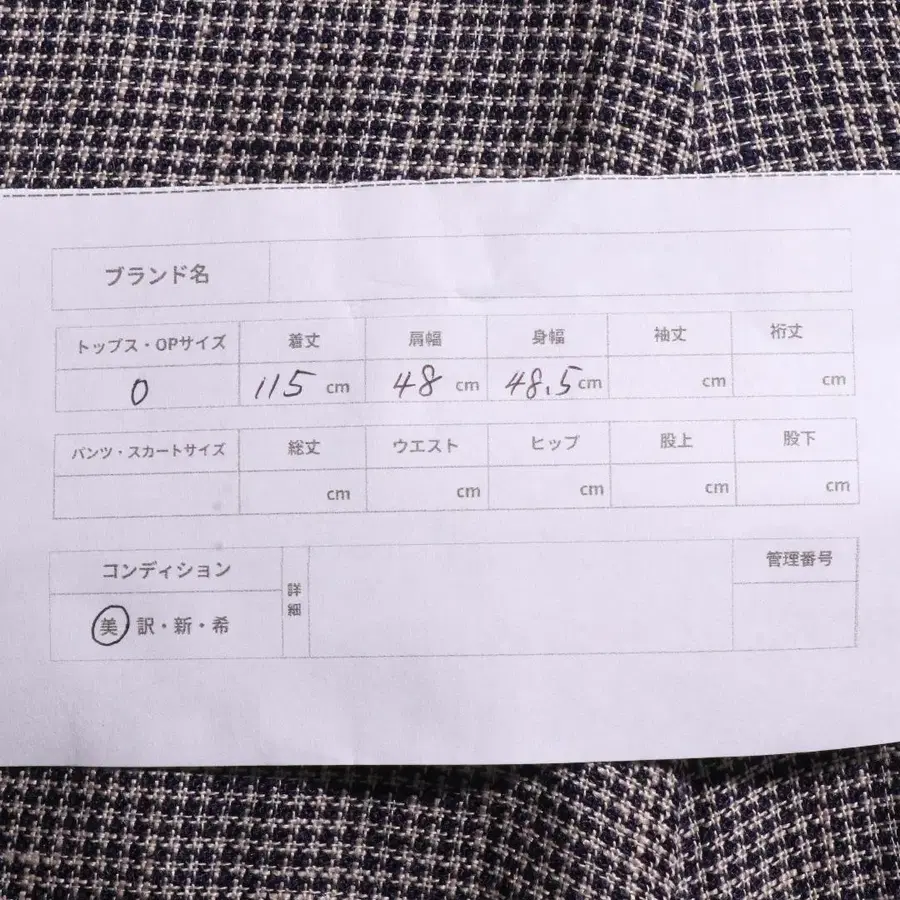 ブランド名
トップス・OPサイズ 着丈 肩幅 身幅 袖丈 裄丈
0 115 cm 48 cm 48.5 cm cm cm
パンツ・スカートサイズ 総丈 ウエスト ヒップ 股上 股下
cm cm cm cm cm
コンディション 詳細 管理番号
美 訳・新・希